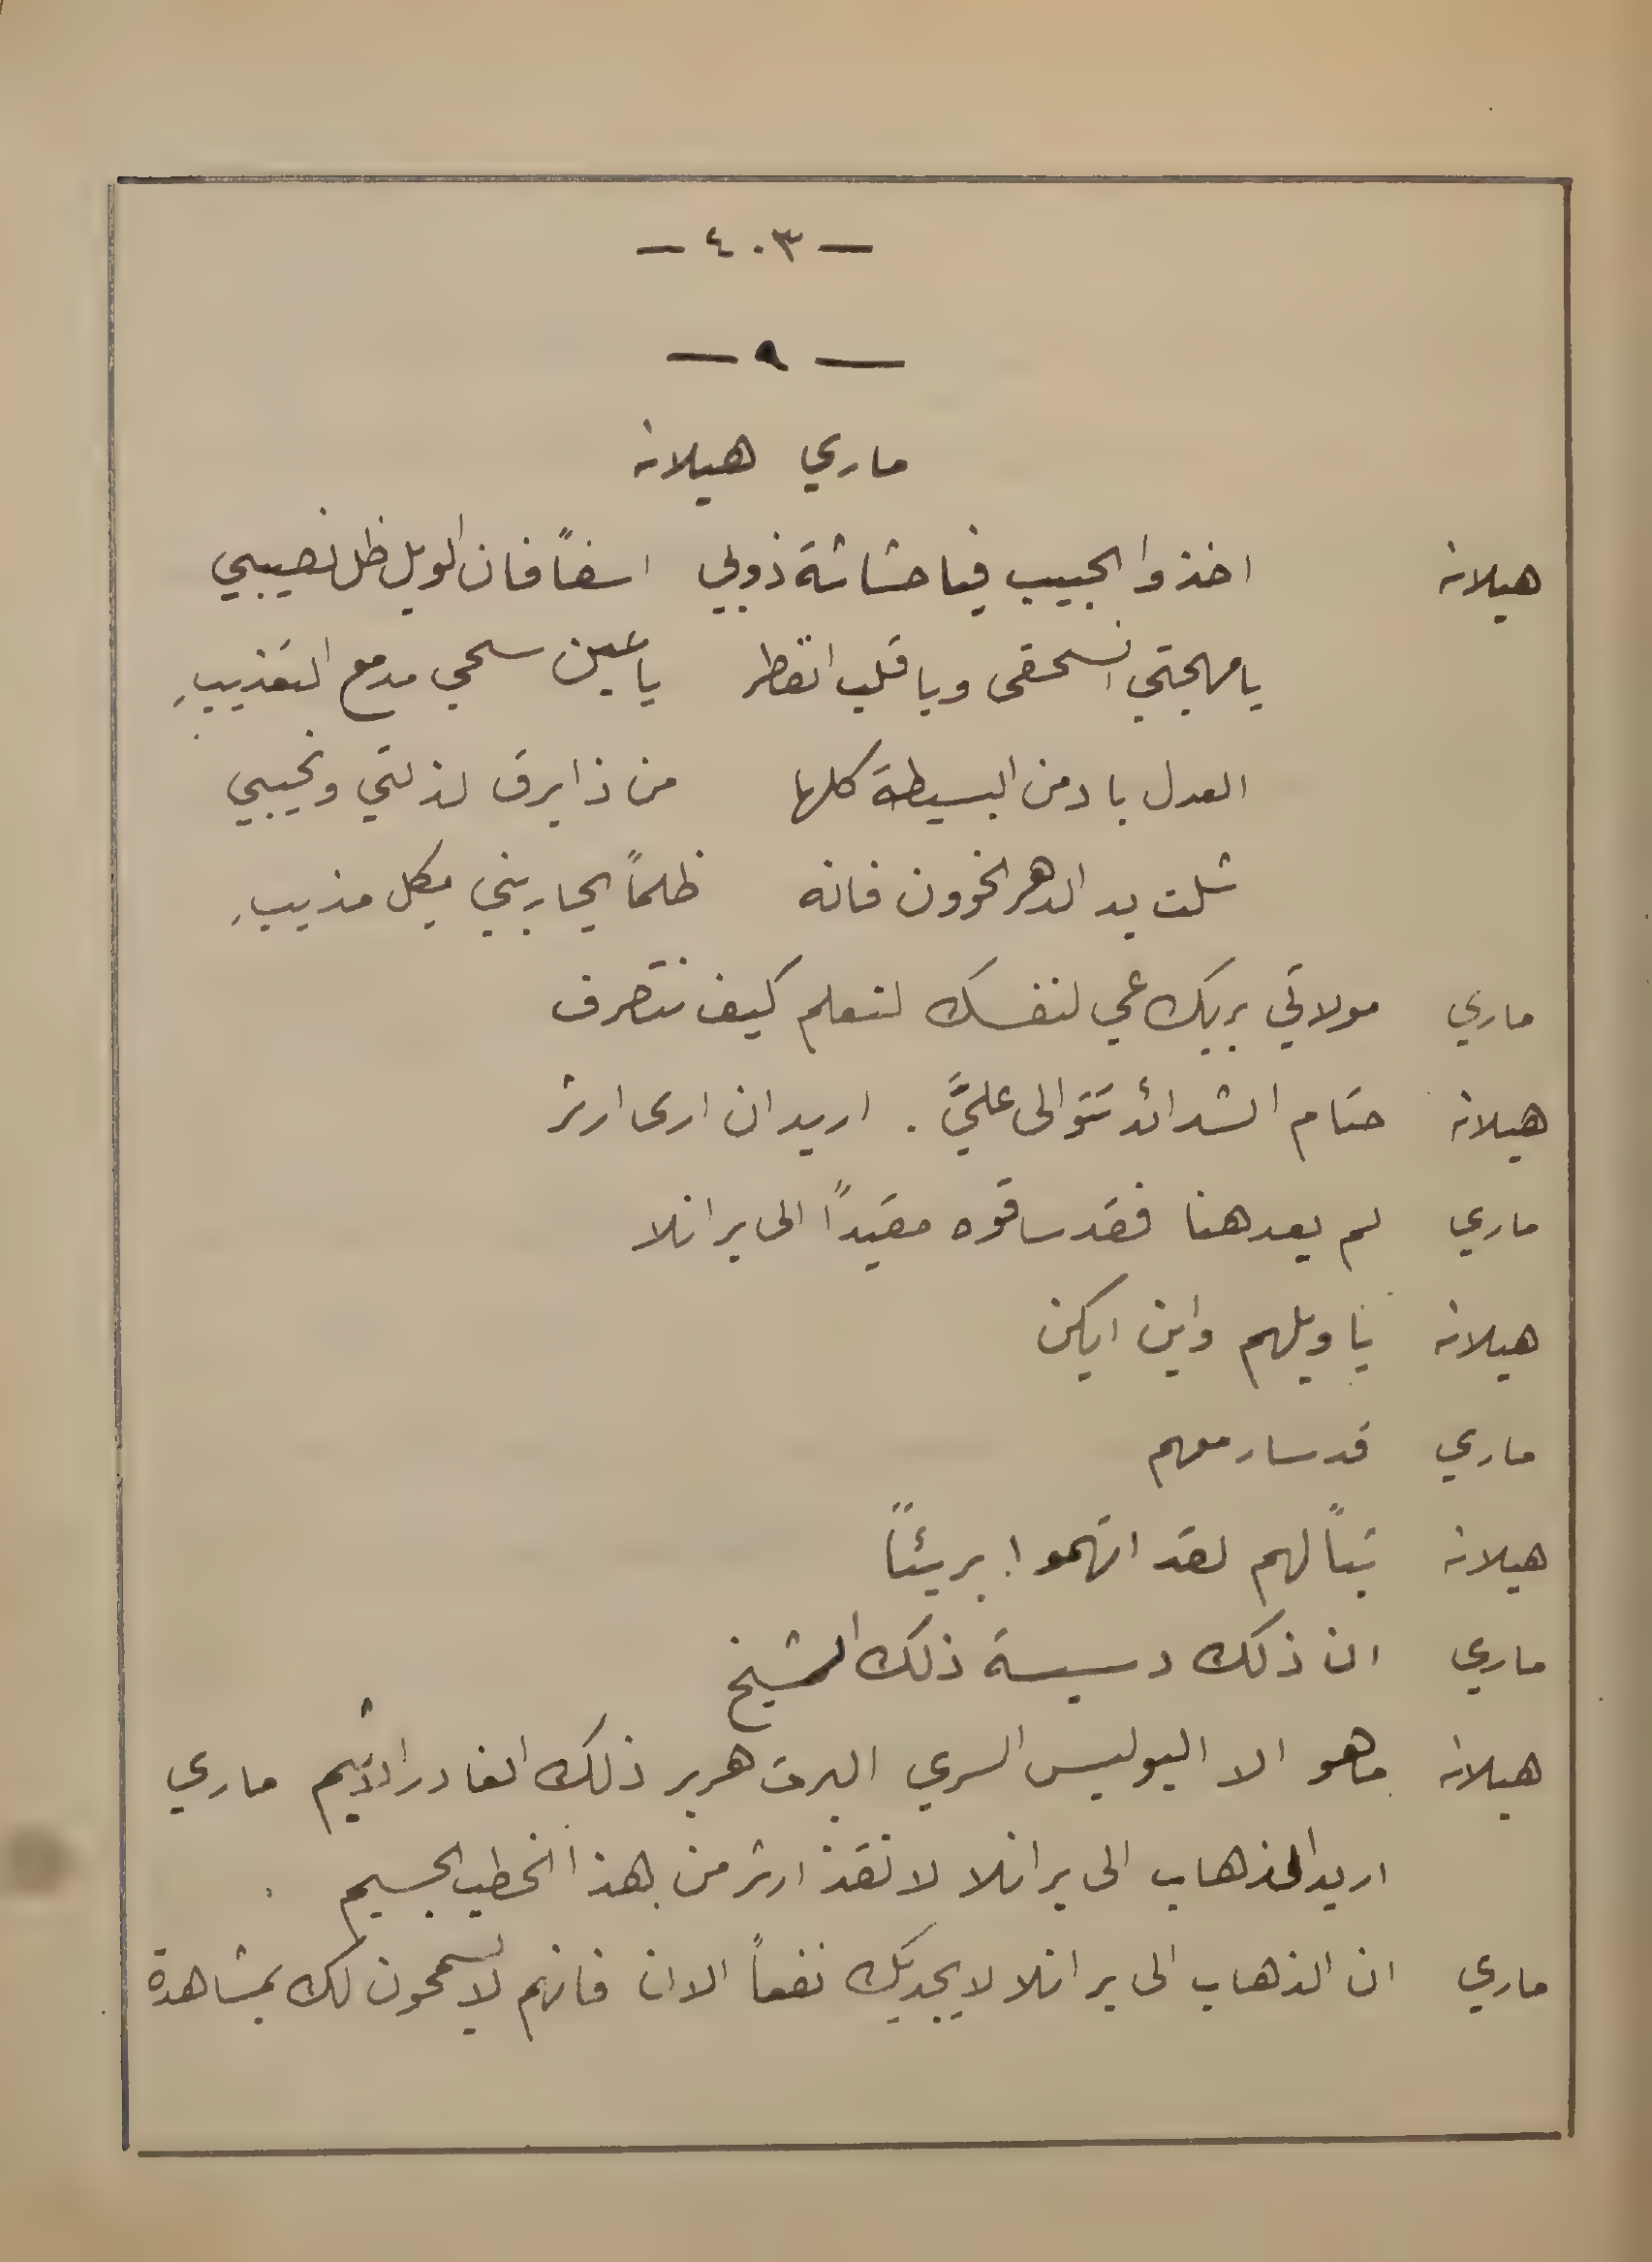 — ٤٠٣ —
— ٩ —
ماري هيلانه
هيلانه اخذوا الحبيب فيا حشاشة ذوبي اسفاً فان الويل ظل نصيبي
يا مهجتي انسحقى ويا قلب انفطر يا عين سحي مدمع التعذيبِ
العدل باد من البسيطة كلها من ذا يرق لذلتي ونحيبي
شلت يد الدهر الخوون فانه ظلماً يحاربني بكل مذيبِ
ماري مولاتي بربك عي لنفسك لنعلم كيف نتصرف
هيلانه حتام الشدائد تتوالى عليَّ . اريد ان ارى ارثر
ماري لم يعد هنا فقد ساقوه مقيداً الى برانلا
هيلانه يا ويلهم واين ايكن
ماري قد سار معهم
هيلانه تباً لهم لقد اتهموا بريئاً
ماري ان ذلك دسيسة ذلك الشيخ
هيلانه ما هو الا البوليس السري البرت هربر ذلك الغادر الاثيم ماري
اريد الذهاب الى برانلا لانقذ ارثر من هذا الخطب الجسيم
ماري ان الذهاب الى برانلا لا يجديك نفعاً الان فانهم لا يسمحون لك بمشاهدة